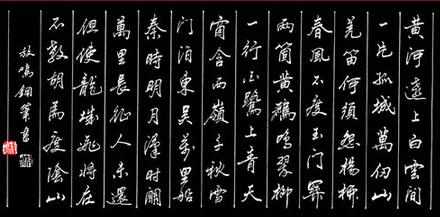 黄河遠上白雲間
一片孤城萬仞山
羌笛何須怨楊柳
春風不度玉門關
兩箇黄鸝鳴翠柳
一行白鷺上青天
窗含西嶺千秋雪
门泊東吴萬里船
秦時明月漢時關
萬里長征人未還
但使龍城飛將在
不教胡馬度陰山
鳴鋼筆書